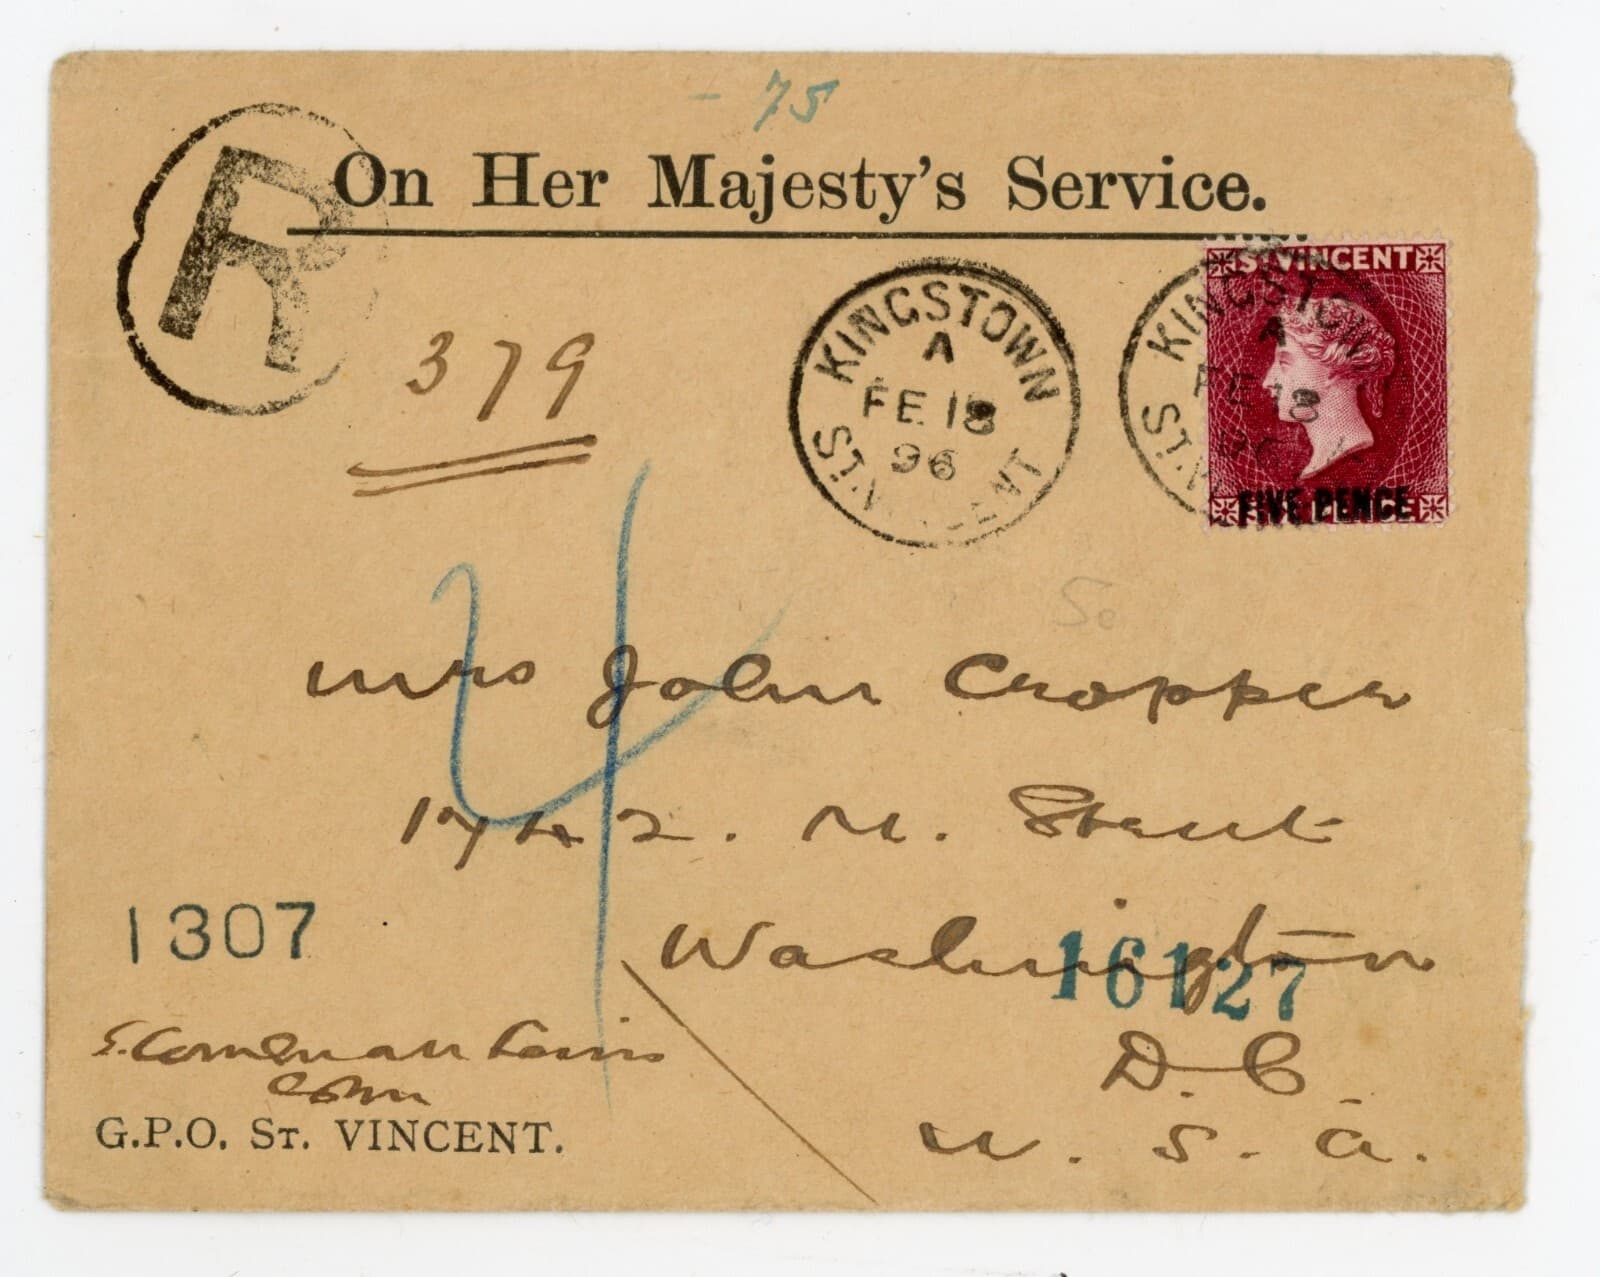 - 75
On Her Majesty's Service.
R
379
KINGSTOWN
A
FE 18
96
ST. VINCENT
KINGSTOWN
A
FE 18
96
ST. V
ST VINCENT
FIVE PENCE
4
Mrs John Cropper
1742. N. Street
Washington
16127
D. C.
U. S. A.
1307
G.P.O. ST. VINCENT.